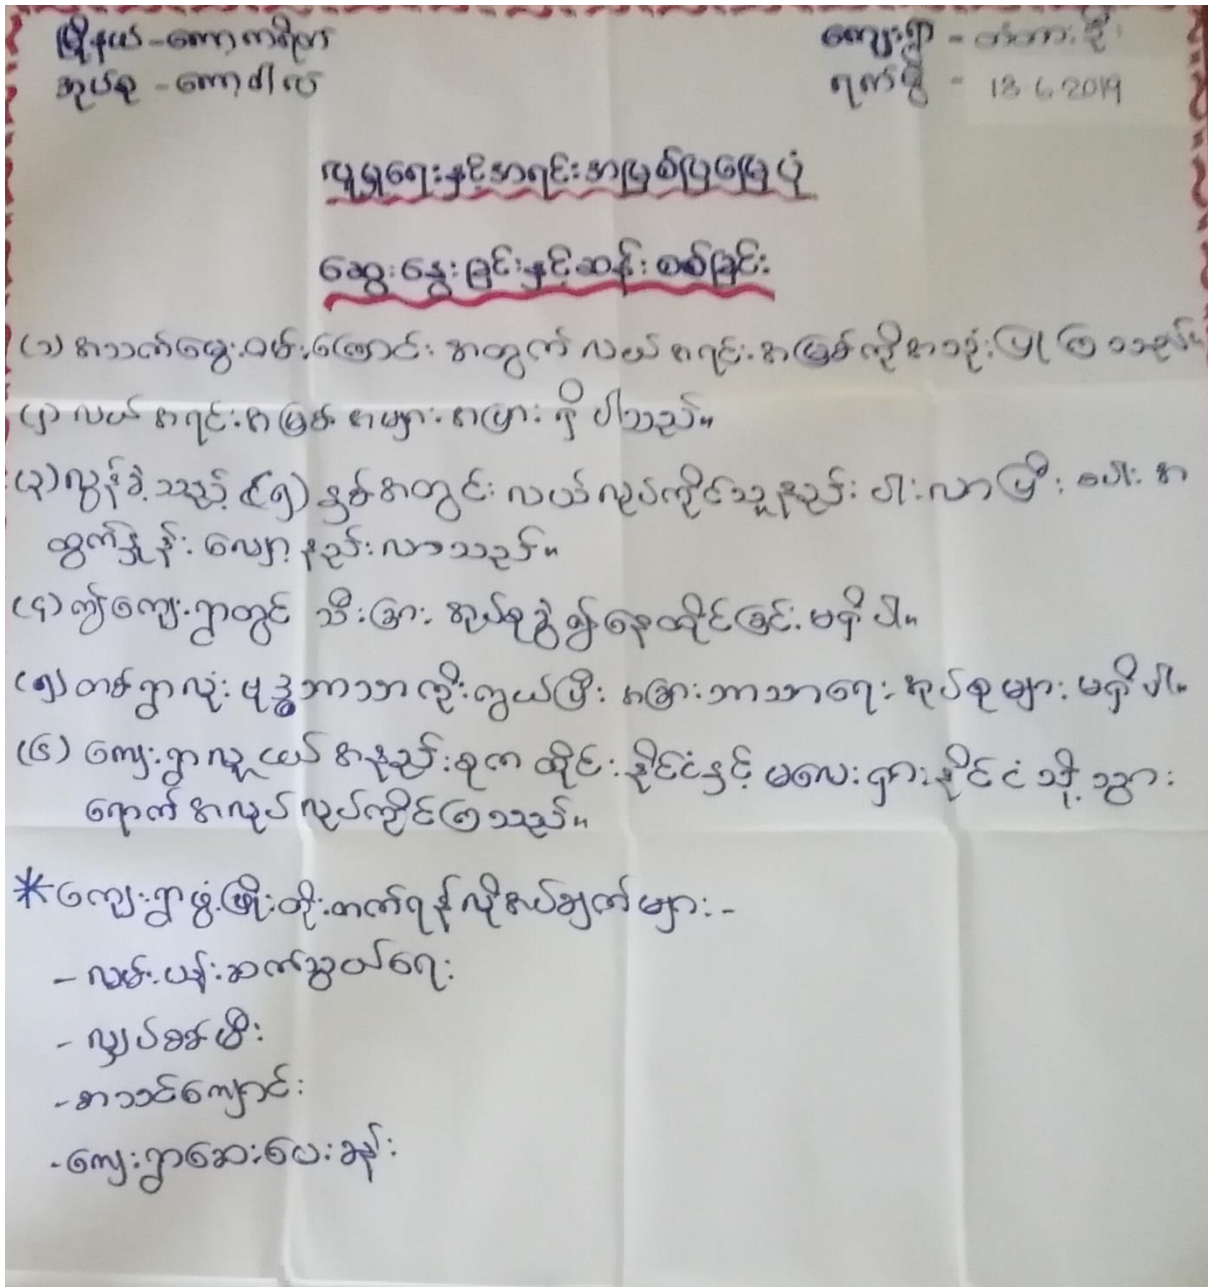 မြို့နယ် - ကော့ကရိတ် ကျေးရွာ - တံတားဦး
အုပ်စု - ကော့ဝါလယ် ရက်စွဲ - 18.6.2019
လူမှုရေးနှင့်အရင်းအမြစ်ပြမြေပုံ
ဆွေးနွေးခြင်းနှင့်ဆန်းစစ်ခြင်း
(၁) အသက်မွေးဝမ်းကြောင်း အတွက် လယ် အရင်းအမြစ်ကိုအသုံးပြုကြသည်။
(၂) လယ် အရင်းအမြစ် အများအပြား ရှိ ပါသည်။
(၃) လွန်ခဲ့သည့် (၅) နှစ်အတွင်း လယ်လုပ်ကိုင်သူနည်း ပါးလာပြီး စပါး အ
ထွက်နှုန်း လျော့နည်းလာသည်။
(၄) ဤကျေးရွာတွင် သီးခြား အုပ်စုခွဲ၍နေထိုင်ခြင်း မရှိ ပါ။
(၅) တစ်ရွာလုံး ဗုဒ္ဓဘာသာ ကိုးကွယ်ပြီး အခြားဘာသာရေး အုပ်စုများ မရှိ ပါ။
(၆) ကျေးရွာလူငယ် အနည်းစုက ထိုင်းနိုင်ငံနှင့် မလေးရှားနိုင်ငံ သို့ သွား
ရောက် အလုပ်လုပ်ကိုင်ကြသည်။
* ကျေးရွာဖွံ့ဖြိုးတိုးတက်ရန်လိုအပ်ချက်များ -
- လမ်းပန်းဆက်သွယ်ရေး
- လျှပ်စစ်မီး
- စာသင်ကျောင်း
- ကျေးရွာဆေးပေးခန်း